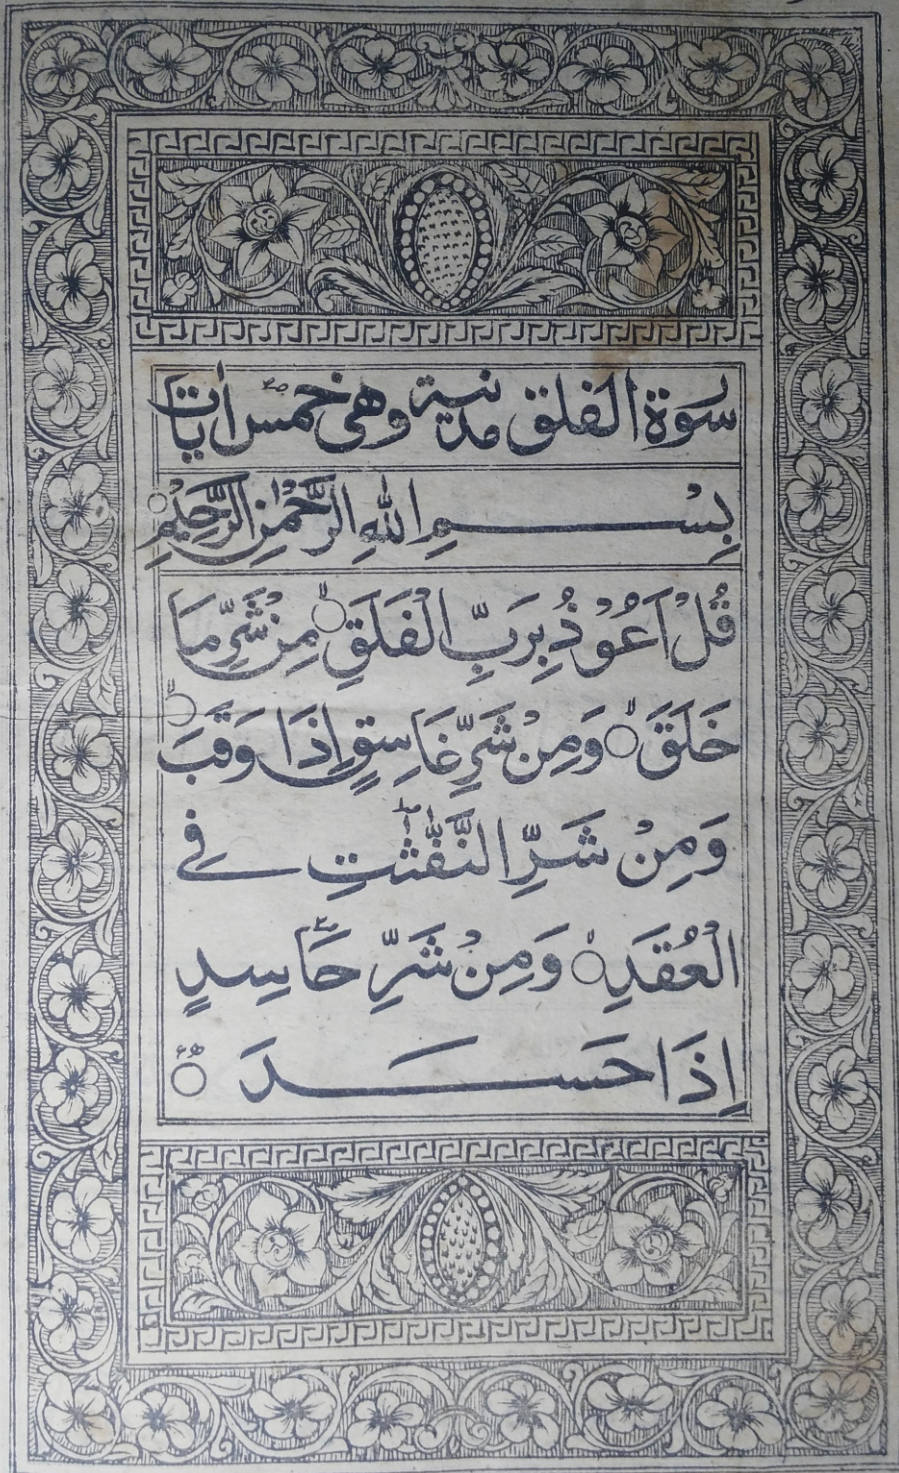 سورة الفلق مدنية وهى خمس ايات
بِسْمِ اللهِ الرَّحْمٰنِ الرَّحِيْمِ
قُلْ اَعُوْذُ بِرَبِّ الْفَلَقِ مِنْ شَرِّ مَا
خَلَقَ وَمِنْ شَرِّ غَاسِقٍ اِذَا وَقَبَ
وَمِنْ شَرِّ النَّفّٰثٰتِ فِے
الْعُقَدِ وَمِنْ شَرِّ حَاسِدٍ
اِذَا حَسَدَ